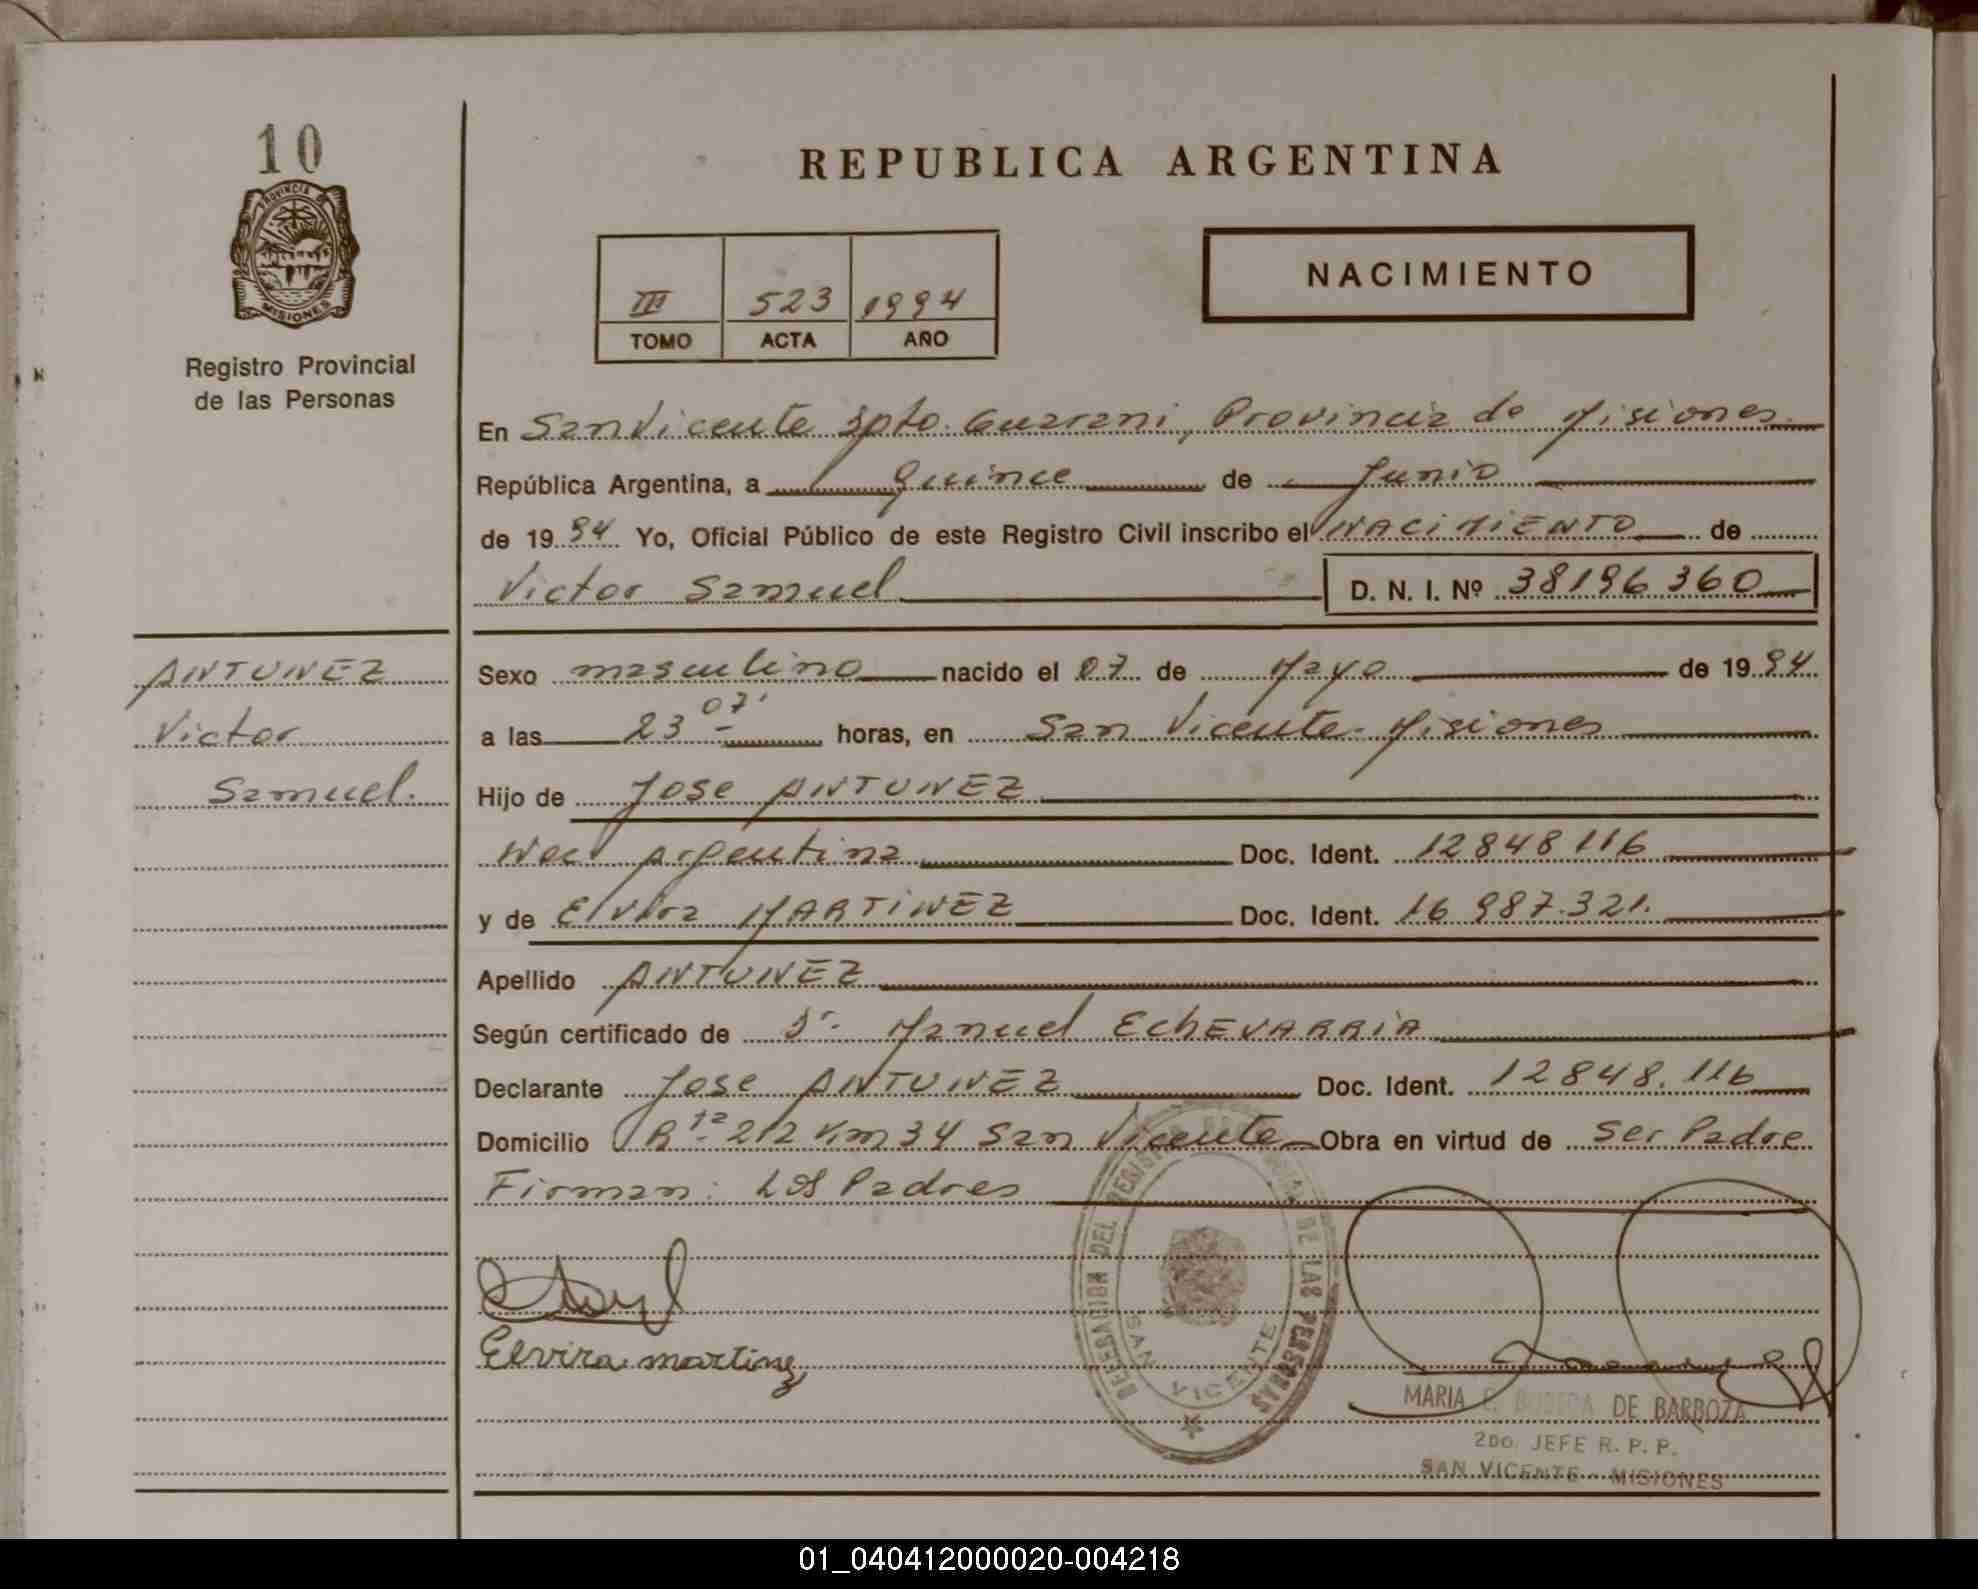 10
PROVINCIA
MISIONES
Registro Provincial
de las Personas
REPUBLICA ARGENTINA
III 523 1994
TOMO ACTA AÑO
NACIMIENTO
En San Vicente Dpto. Guarani, Provincia de Misiones.
República Argentina, a Quince de Junio
de 1994 Yo, Oficial Público de este Registro Civil inscribo el NACIMIENTO de
Victor Samuel D. N. I. Nº 38196360
ANTUNEZ
Victor
Samuel.
Sexo masculino nacido el 07 de Mayo de 1994
a las 23 07' horas, en San Vicente - Misiones
Hijo de Jose ANTUNEZ
Nac. Argentina Doc. Ident. 12848116
y de Elvira MARTINEZ Doc. Ident. 16 987.321.
Apellido ANTUNEZ
Según certificado de Dr. Manuel EchEVARRIA
Declarante Jose ANTUNEZ Doc. Ident. 12848.116
Domicilio Rta 212 Km 34 San Vicente Obra en virtud de ser Padre
Firman: Los Padres
Elvira martinez
DELEGACION DEL REGISTRO DE LAS PERSONAS
SAN VICENTE
MARIA DE BARBOZA
2DO. JEFE R. P. P.
SAN VICENTE - MISIONES
01_040412000020-004218